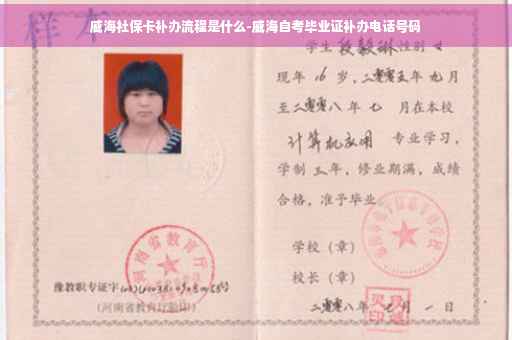 威海社保卡补办流程是什么-威海自考毕业证补办电话号码
样本
学生 段毅琳 性别 女
现年 16 岁，二零零五年 九月
至二零零八年 七 月在本校
计算机应用 专业学习，
学制 三 年，修业期满，成绩
合格，准予毕业
学校（章）
校长（章）
二零零八年 七 月 一 日
河南省教育厅
豫教职专证字
（河南省教育厅验印）